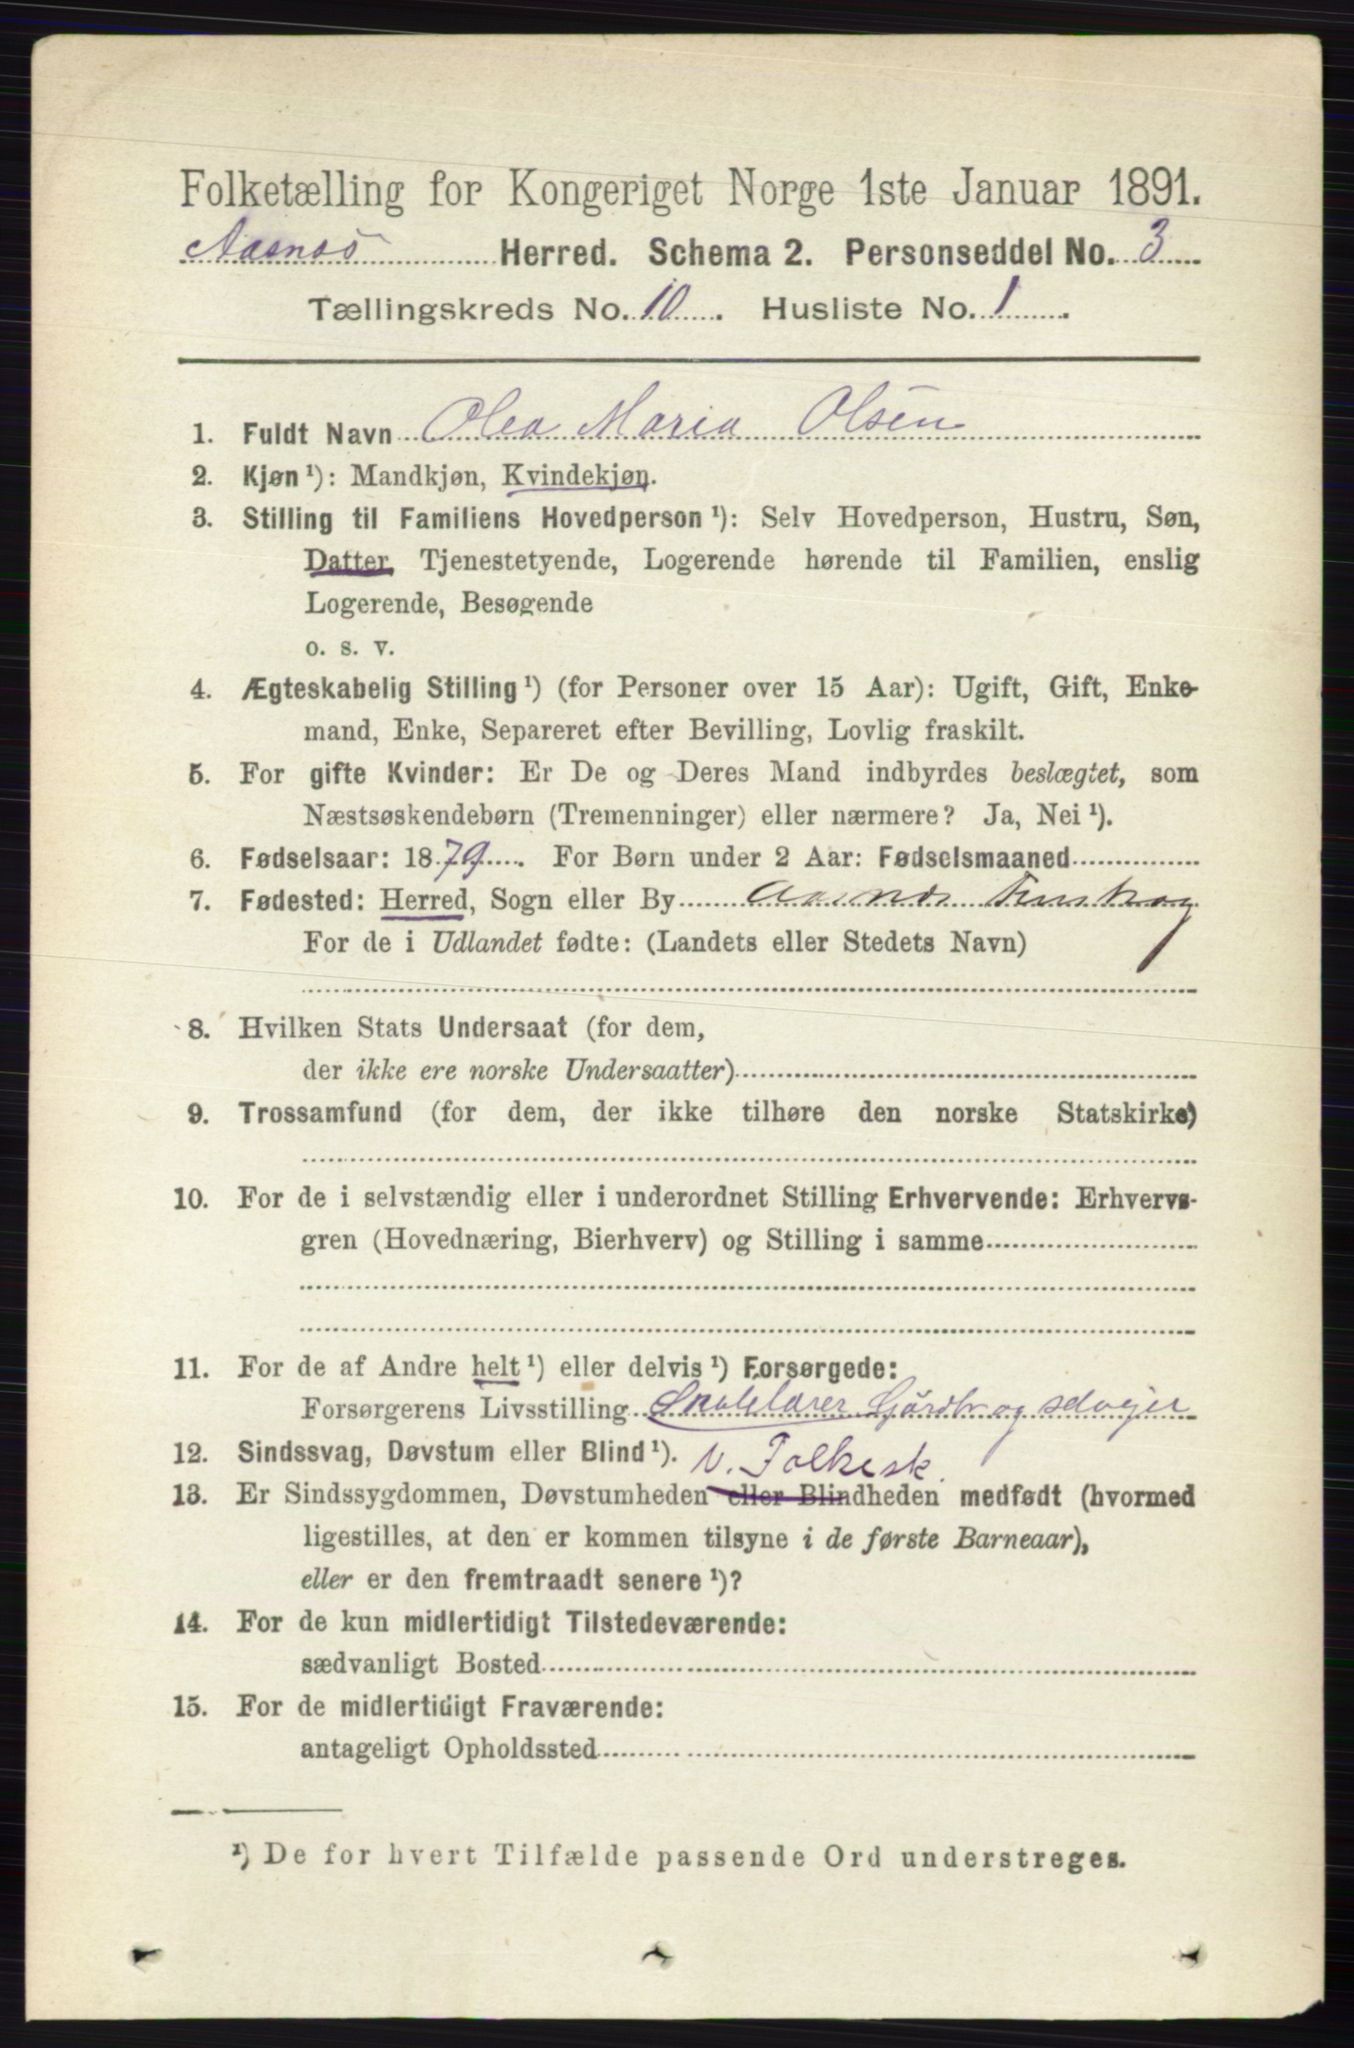 Folketælling for Kongeriget Norge 1ste Januar 1891.
Aasnæs Herred. Schema 2. Personseddel No. 3
Tællingskreds No. 10. Husliste No. 1.
1. Fuldt Navn Olea Maria Olsen
2. Kjøn ¹): Mandkjøn, Kvindekjøn.
3. Stilling til Familiens Hovedperson ¹): Selv Hovedperson, Hustru, Søn,
Datter, Tjenestetyende, Logerende hørende til Familien, enslig
Logerende, Besøgende
o. s. v.
4. Ægteskabelig Stilling ¹) (for Personer over 15 Aar): Ugift, Gift, Enke-
mand, Enke, Separeret efter Bevilling, Lovlig fraskilt.
5. For gifte Kvinder: Er De og Deres Mand indbyrdes beslægtet, som
Næstsøskendebørn (Tremenninger) eller nærmere? Ja, Nei ¹).
6. Fødselsaar: 1879. For Børn under 2 Aar: Fødselsmaaned
7. Fødested: Herred, Sogn eller By Aasnæs
For de i Udlandet fødte: (Landets eller Stedets Navn)
8. Hvilken Stats Undersaat (for dem,
der ikke ere norske Undersaatter)
9. Trossamfund (for dem, der ikke tilhøre den norske Statskirke)
10. For de i selvstændig eller i underordnet Stilling Erhvervende: Erhvervs-
gren (Hovednæring, Bierhverv) og Stilling i samme
11. For de af Andre helt ¹) eller delvis ¹) Forsørgede:
Forsørgerens Livsstilling Skolelærer Gårdbr og selveier
12. Sindssvag, Døvstum eller Blind ¹). v. Folkesk.
13. Er Sindssygdommen, Døvstumheden eller Blindheden medfødt (hvormed
ligestilles, at den er kommen tilsyne i de første Barneaar),
eller er den fremtraadt senere ¹)?
14. For de kun midlertidigt Tilstedeværende:
sædvanligt Bosted
15. For de midlertidigt Fraværende:
antageligt Opholdssted
¹) De for hvert Tilfælde passende Ord understreges.